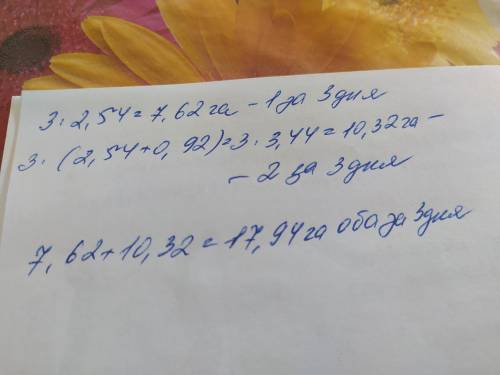 3 · 2,54 = 7,62 га - 1 за 3 дня
3 · (2,54+0,92) = 3 · 3,44 = 10,32 га -
- 2 за 3 дня
7,62 + 10,32 = 17,94 га оба за 3 дня